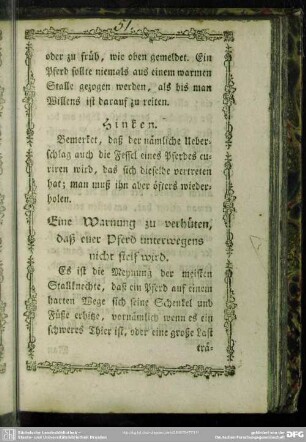 51.
oder zu früh, wie oben gemeldet. Ein
Pferd sollte niemals aus einem warmen
Stalle gezogen werden, als bis man
Willens ist darauf zu reiten.
Hinken.
Bemerket, daß der nämliche Ueber-
schlag auch die Fessel eines Pferdes cu-
riren wird, das sich dieselbe vertreten
hat; man muß ihn aber öfters wieder-
holen.
Eine Warnung zu verhüten,
daß euer Pferd unterwegens
nicht steif wird.
Es ist die Meynung der meisten
Stallknechte, daß ein Pferd auf einem
harten Wege sich seine Schenkel und
Füße erhitze, vornämlich wenn es ein
schweres Thier ist, oder eine große Last
trä-
Sächsische Landesbibliothek -
Staats- und Universitätsbibliothek Dresden
gefördert von der
Deutschen Forschungsgemeinschaft
DFG